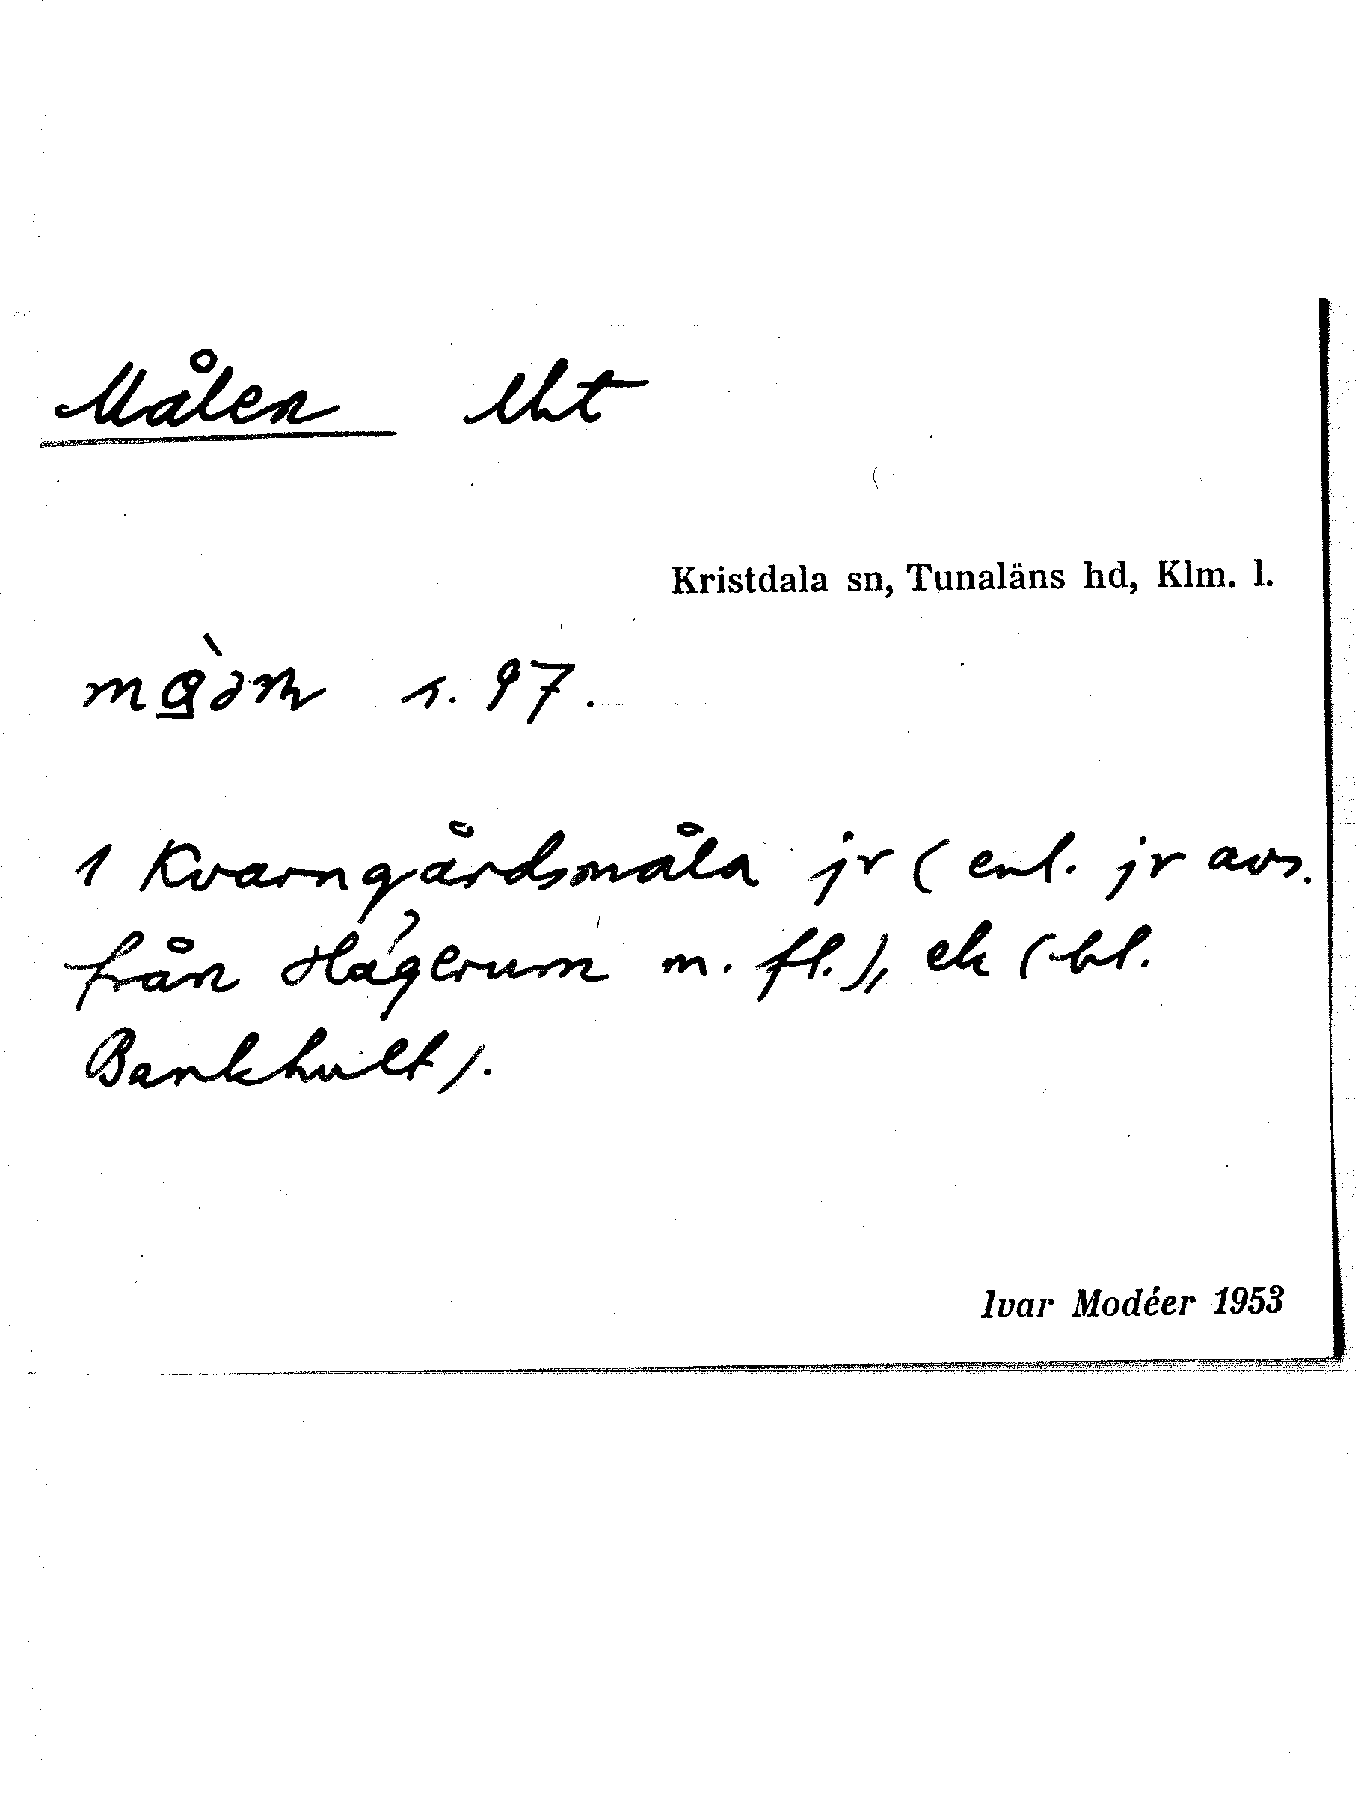 Målen lht
Kristdala sn, Tunaläns hd, Klm. l.
s. 97.
1 Kvarngårdsmåla jr (enl. jr avs.
från Hägerum m. fl.), ek (bl.
Bankhult).
Ivar Modéer 1953